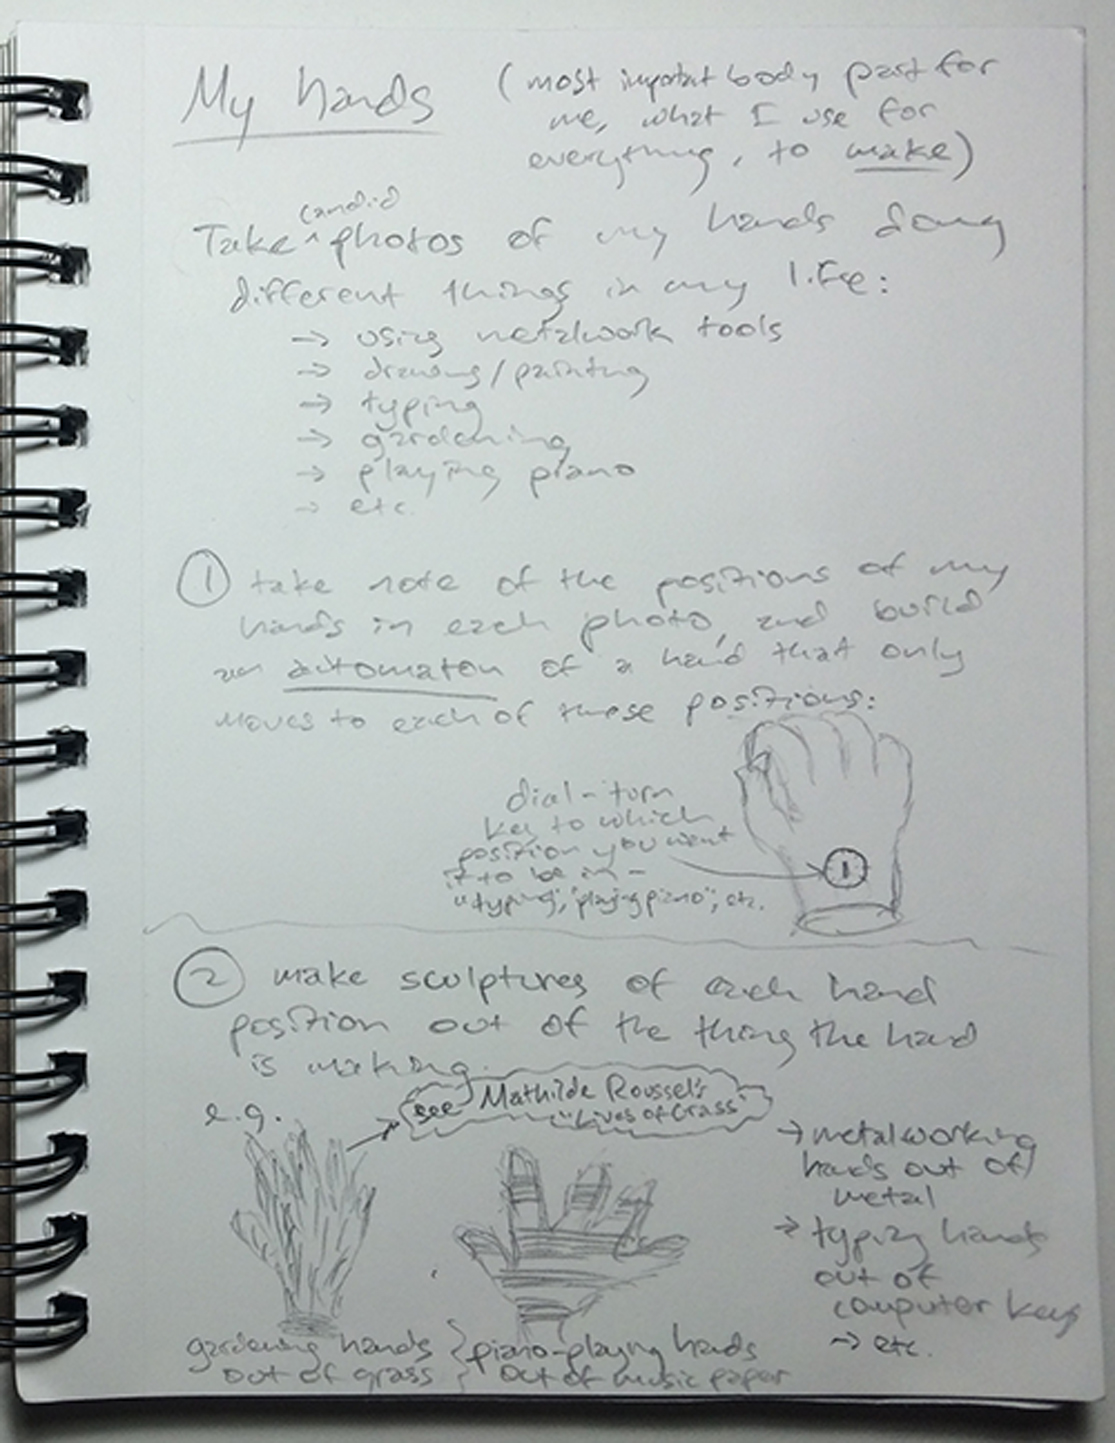 My hands (most important body part for
me, what I use for
everything, to make)
candid
Take ^ photos of my hands doing
different things in my life:
→ using metalwork tools
→ drawing/painting
→ typing
→ gardening
→ playing piano
→ etc.
① take note of the positions of my
hands in each photo, and build
an automaton of a hand that only
moves to each of these positions:
dial-turn
key to which
position you want
it to be in -
"typing", "playing piano", etc.
② make sculptures of each hand
position out of the thing the hand
is making.
e.g.
see Mathilde Roussel's
"Lives of Grass"
gardening hands
out of grass
piano-playing hands
out of music paper
→ metalworking
hands out of
metal
→ typing hands
out of
computer keys
→ etc.